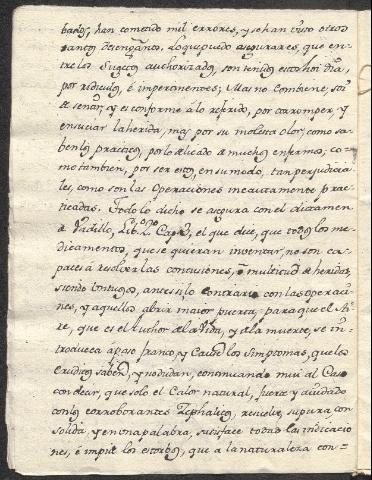 bados, han cometido mil errores, y se han visto otros
tantos desengaños. Lo que puedo asegurar es, que en-
tre los Sugetos authorizados, son tenidos estos hoi dia,
por ridiculos, è impertinentes; Mas no Combiene, soi
de sentir, y es conforme â lo referido, por corromper, y
ensuciar la herida, mas por su molesto olor; como sa-
ben los practicos, por lo delicado de muchos enfermos, co-
mo tambien, por ser estos, en su modo, tan perjudicia-
les, como son las Operaciònes incautamente prac-
ticadas. Todo lo dicho se asegura con el dictamen
de Vadillo, Lib. 2. Cap. el que dice, que todos los me-
dicamentos, que se quieran inventar, no son ca-
paces â resolver las contusiones, ò multitud de heridas,
siendo contusas, antes si lo contrario con las operacio-
nes, y aquellos abrir maior puerta, para que el Ai-
re, que es el Auchor de la Vida, y de la muerte, se in-
troduzca â paso franco, y Cause los simptomas, que los
Eruditos saben, y no dudan, continuando mui al Caso
con decir, que solo el Calor natural, fuerte y aiudado
con los corroborantes Zephalicos, resuelve, supura, con
solida, y en una palabra, satisface todas las indicacio
nes, è impide los estorbos, que a la naturaleza con-